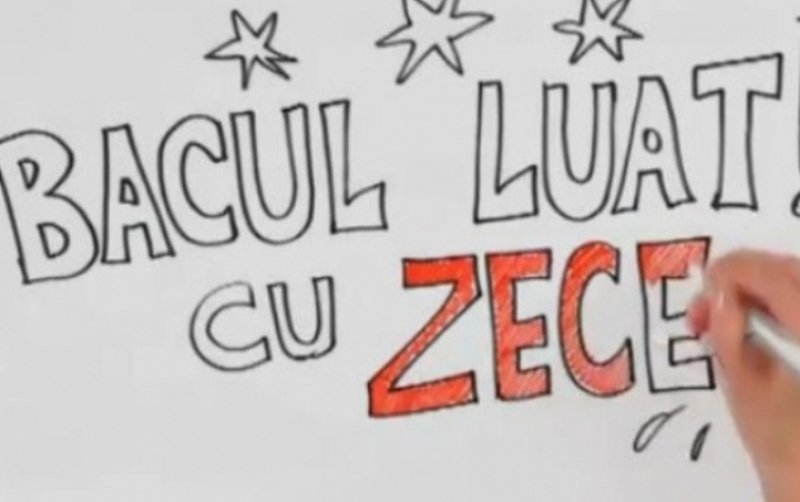 BACUL LUAT!
CU ZECE